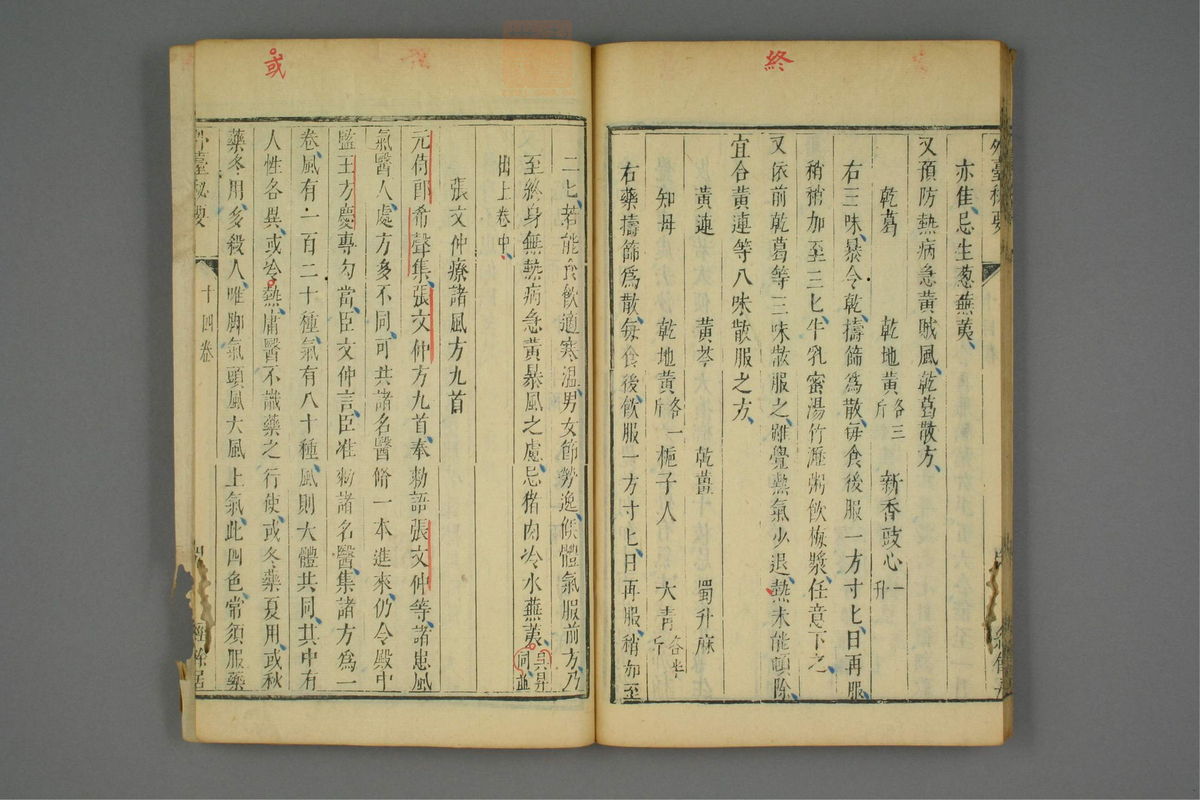 終
外臺秘要
亦佳、忌生葱蕪荑、
又預防熱病急黃賊風、乾葛散方、
乾葛 乾地黃各三斤 新香豉心一升
右三味暴令乾擣篩爲散、每食後服一方寸匕、日再服、
稍稍加至三匕、牛乳蜜湯竹瀝粥飲梅漿、任意下之、
又依前乾葛等三味散服之、雖覺熱氣少退、熱未能頓除、
宜合黃連等八味散服之方、
黃連 黃芩 乾薑 蜀升麻
知母 乾地黃各一斤 梔子人 大青各半斤
右藥擣篩爲散、每食後、飲服一方寸匕、日再服、稍加至
或
二匕、若能食飲適寒溫、男女節勞逸、候體氣服前方、乃
至終身無熱病急黃暴風之慮、忌猪肉冷水蕪荑、吳昇同並
出上卷中、
張文仲療諸風方九首
元侍郎希聲集、張文仲方九首、奉敕語張文仲等、諸患風
氣醫人、處方多不同、可共諸名醫脩一本進來、仍令殿中
監王方慶專勾當、臣文仲言、臣准敕諸名醫、集諸方爲一
卷風有一百二十種、氣有八十種、風則大體共同、其中有
人性各異、或冷熱、庸醫不識藥之行使、或冬藥夏用、或秋
藥冬用、多殺人、唯脚氣頭風大風上氣、此四色、常須服藥
外臺秘要
十四卷
經餘居